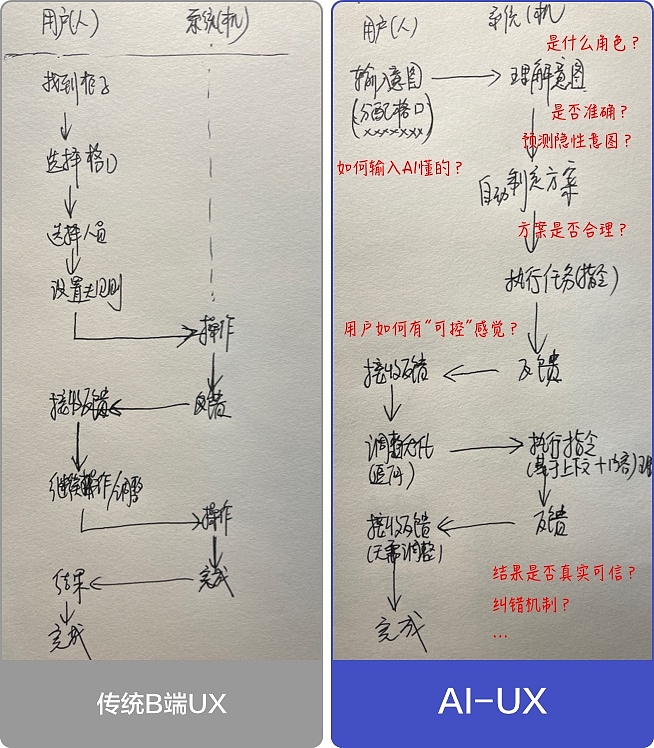 用户(人)
系统(机)
找到格子
选择格口
选择人员
设置规则
操作
反馈
接收反馈
继续操作/调整
操作
完成
结果
完成
传统B端UX
用户(人)
系统(机)
是什么角色？
输入意图
理解意图
(分配格口
xxxxxxx)
是否准确？
预测隐性意图？
如何输入AI懂的？
自动制定方案
方案是否合理？
执行任务(指令)
用户如何有“可控”感觉？
接收反馈
反馈
调整优化
(追问)
执行指令
(基于上下文+
接收反馈
(无需调整)
反馈
结果是否真实可信？
纠错机制？
...
完成
AI-UX